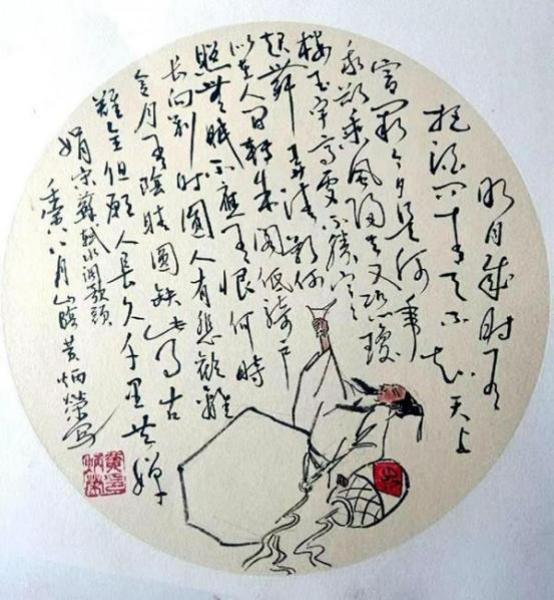 明月幾时有
把酒问青天不知天上
宫阙今夕是何年
我欲乘风归去又恐瓊
楼玉宇高处不胜寒
起舞弄清影何
似在人间转朱阁低绮户
照無眠不應有恨何時
长向别时圆人有悲歡離
合月有陰晴圆缺此事古
難全但願人長久千里共嬋
娟 宋蘇軾水调歌頭
壬寅八月山陰黄炳榮写